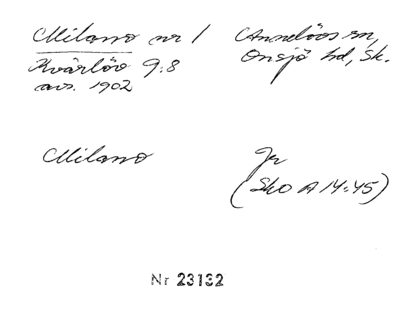 Milano nr 1
Annelövs sn,
Onsjö hd, Sk.
Kvärlöv 9:8
avs. 1902
Milano
Jr
(Sko A 14:45)
Nr 23132